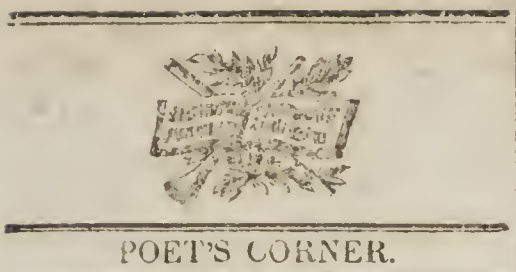 POET'S CORNER.